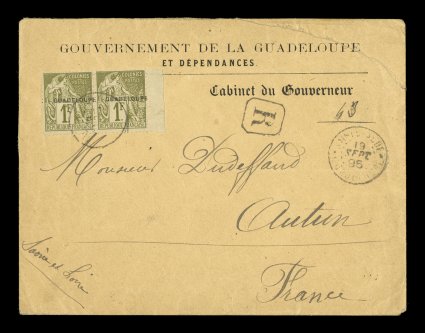 GOUVERNEMENT DE LA GUADELOUPE
ET DÉPENDANCES.
Cabinet du Gouverneur
COLONIES COLONIES
GUADELOUPE GUADELOUPE
1F 1F
R
43
19
SEPT
95
Monsieur Dudeffand
Autun
Saône et Loire
France